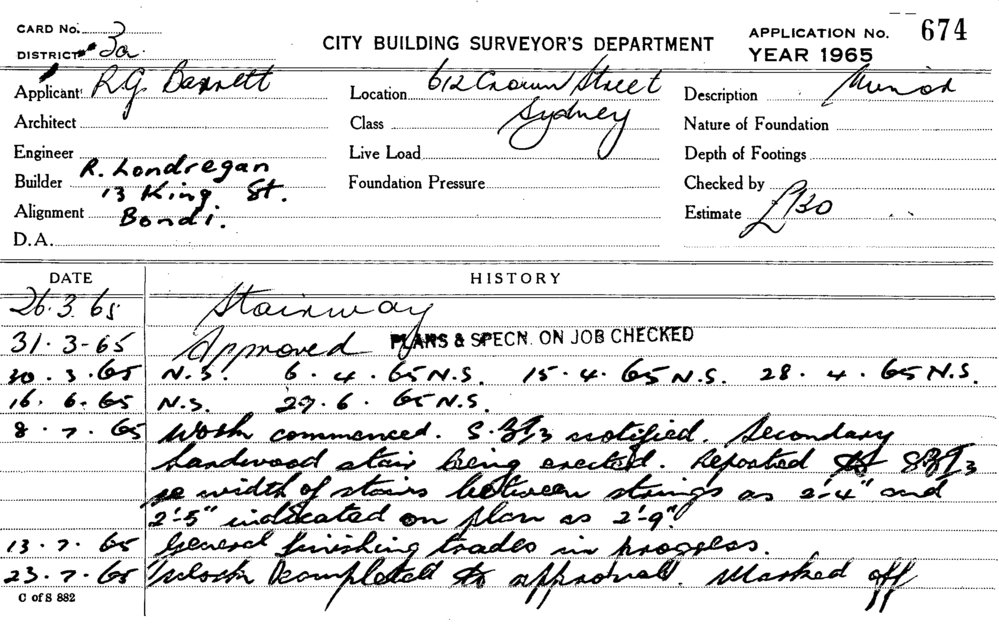 CARD No. 3
DISTRICT 3a
CITY BUILDING SURVEYOR'S DEPARTMENT
APPLICATION No. 674
YEAR 1965
Applicant R.G. Barnett
Location 612 Crown Street
Sydney
Description
Architect
Class
Nature of Foundation
Engineer
Live Load
Depth of Footings
Builder R. Londregan
13 King St.
Bondi.
Foundation Pressure
Checked by
Alignment
Estimate £130
D.A.
DATE HISTORY
26.3.65 Stairway
31.3-65 Approved PLANS & SPECN. ON JOB CHECKED
30.3.65 N.S. 6.4.65 N.S. 15.4.65 N.S. 28.4.65 N.S.
16.6.65 N.S. 29.6.65 N.S.
8.7.65 Work commenced. notified. Secondary
hardwood stair being erected. Reported to
re width of stairs between strings as 2'-4" and
2'-5" indicated on plan as 2'-9".
13.7.65 General finishing trades in progress.
23.7.65 Work completed to approval. Marked off
C of S 882